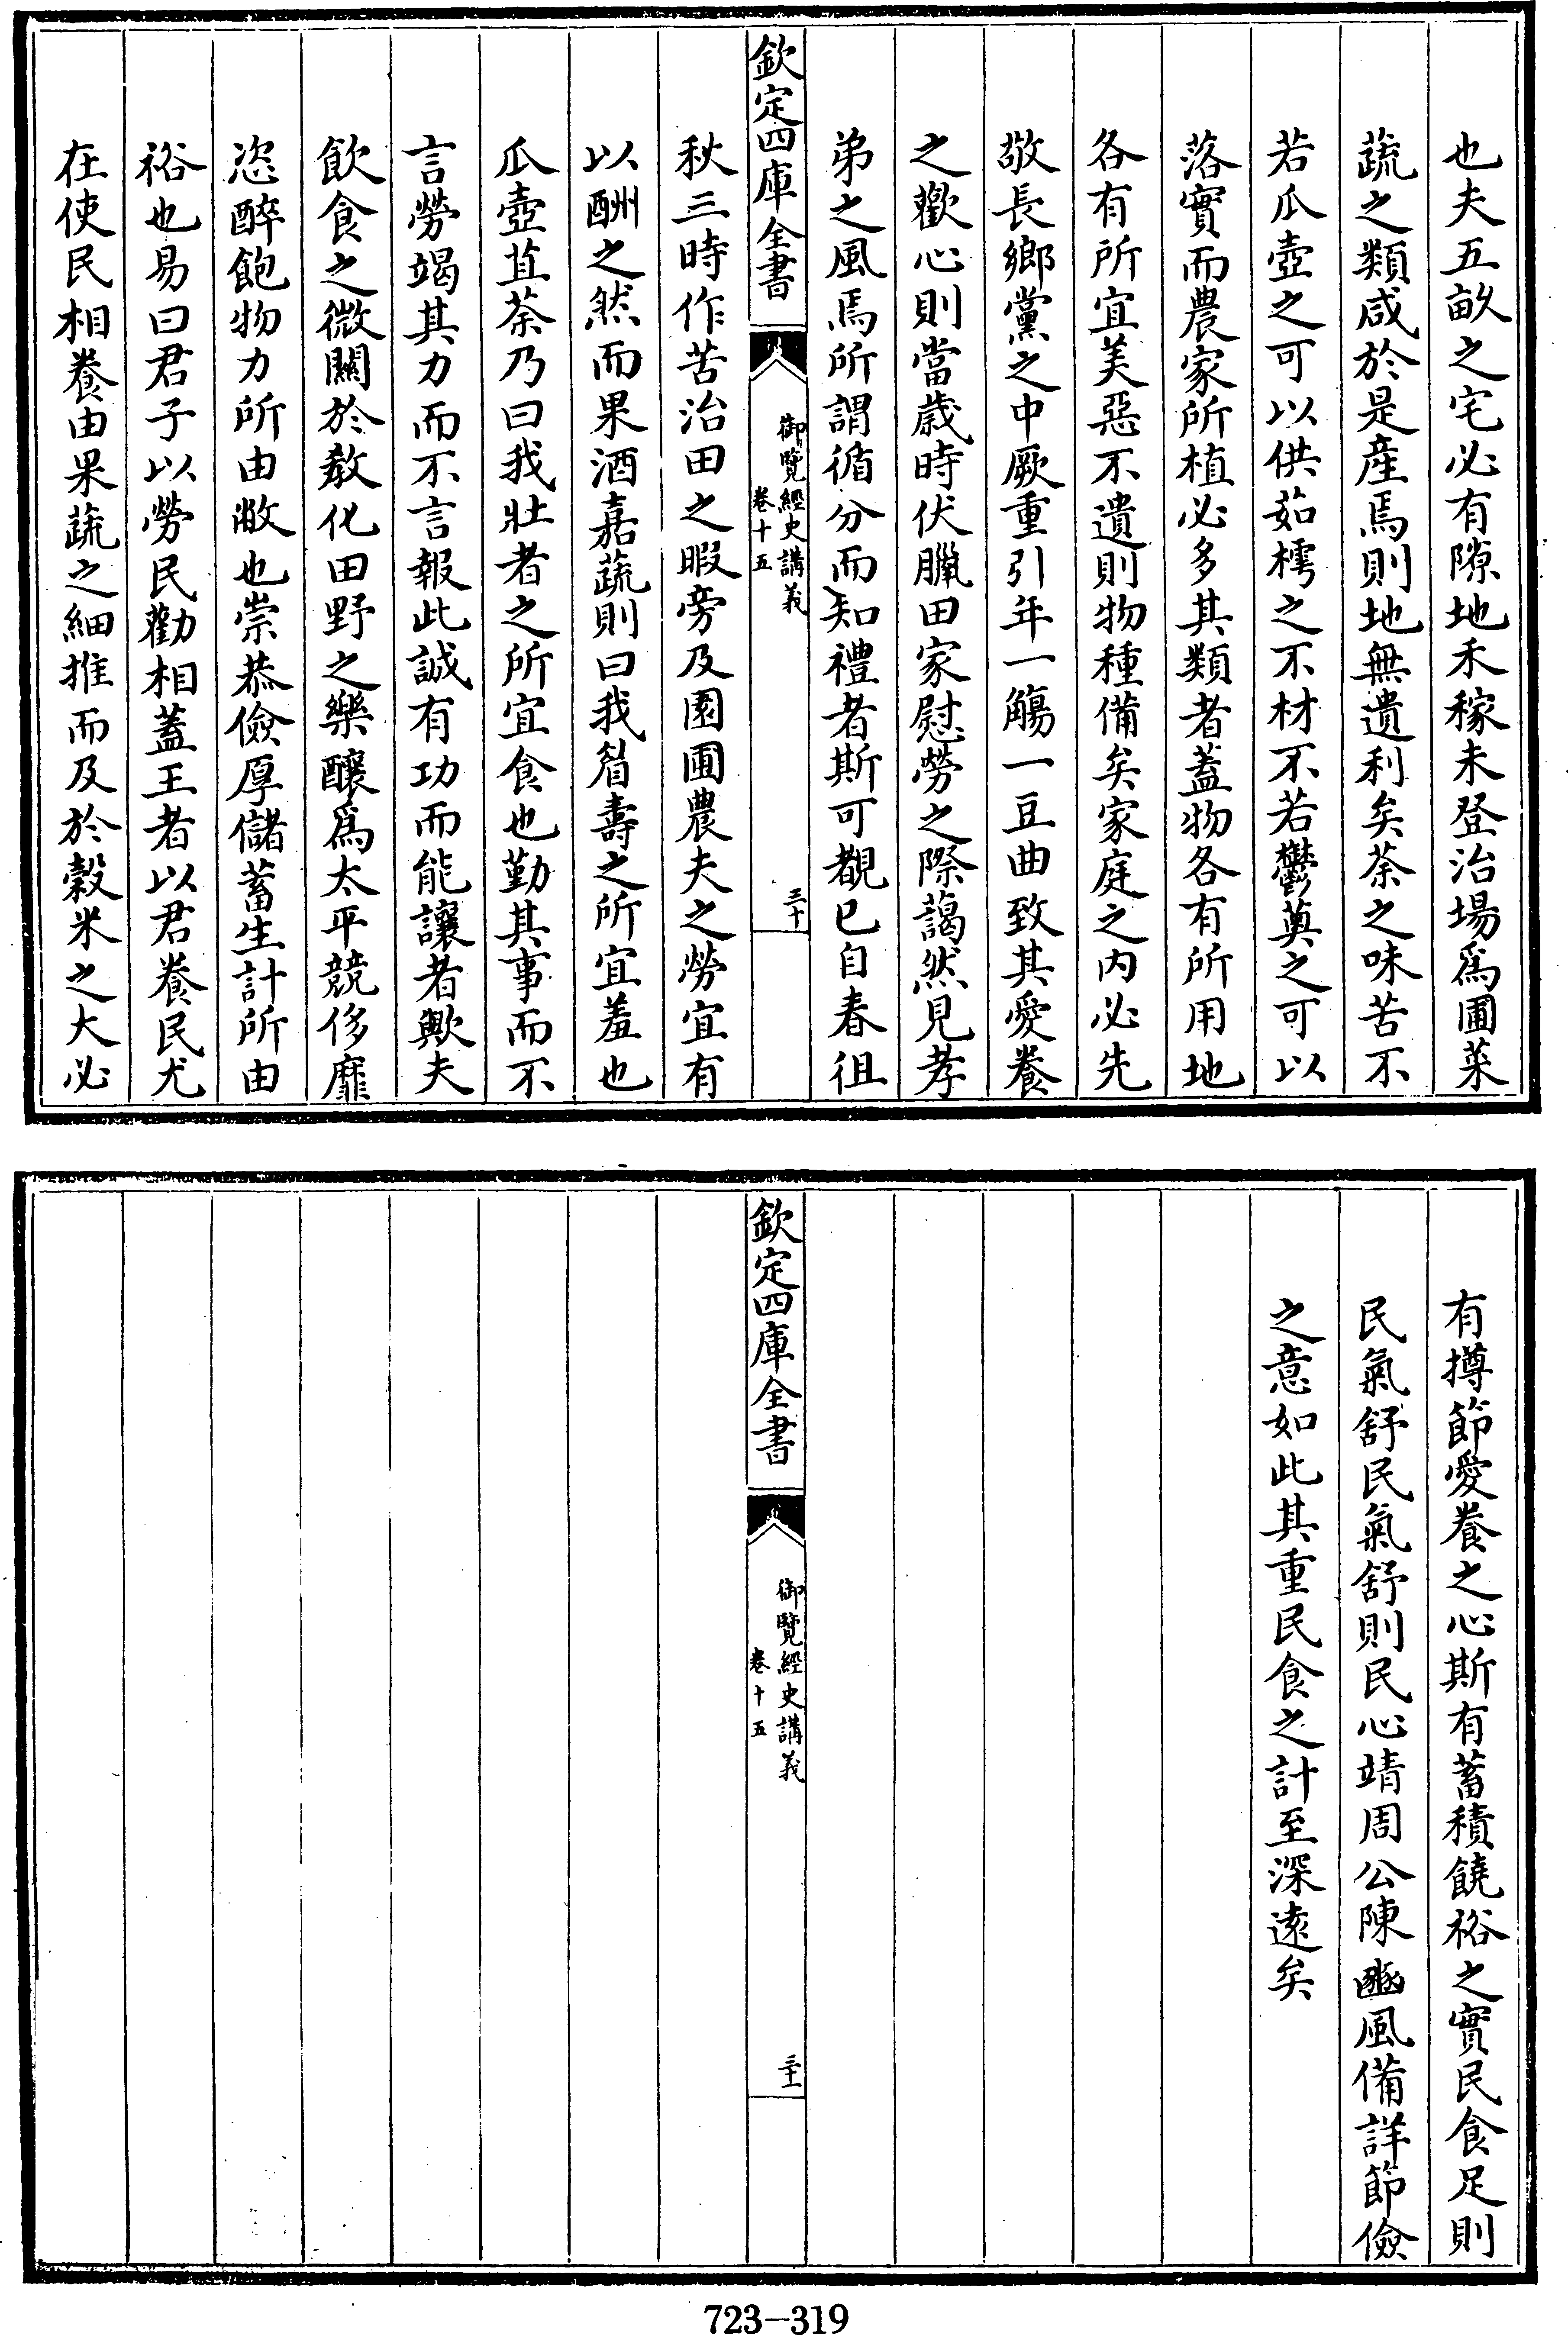 也夫五畝之宅必有隙地禾稼未登治場爲圃菜
蔬之類咸於是産焉則地無遺利矣荼之味苦不
若瓜壺之可以供茹樗之不材不若鬱薁之可以
落實而農家所植必多其類者蓋物各有所用地
各有所宜美惡不遺則物種備矣家庭之内必先
敬長鄉黨之中厥重引年一觴一豆曲致其愛養
之歡心則當歲時伏臘田家慰勞之際藹然見孝
弟之風焉所謂循分而知禮者斯可覩已自春徂
欽定四庫全書
御覽經史講義
卷十五
三十
秋三時作苦治田之暇旁及園圃農夫之勞宜有
以酬之然而果酒嘉蔬則曰我眉壽之所宜羞也
瓜壺苴荼乃曰我壯者之所宜食也勤其事而不
言勞竭其力而不言報此誠有功而能讓者歟夫
飲食之微關於教化田野之樂釀爲太平競侈靡
恣醉飽物力所由敝也崇恭儉厚儲蓄生計所由
裕也易曰君子以勞民勸相蓋王者以君養民尤
在使民相養由果蔬之細推而及於穀米之大必
有撙節愛養之心斯有蓄積饒裕之實民食足則
民氣舒民氣舒則民心靖周公陳豳風備詳節儉
之意如此其重民食之計至深遠矣
欽定四庫全書
御覽經史講義
卷十五
三十一
723-319